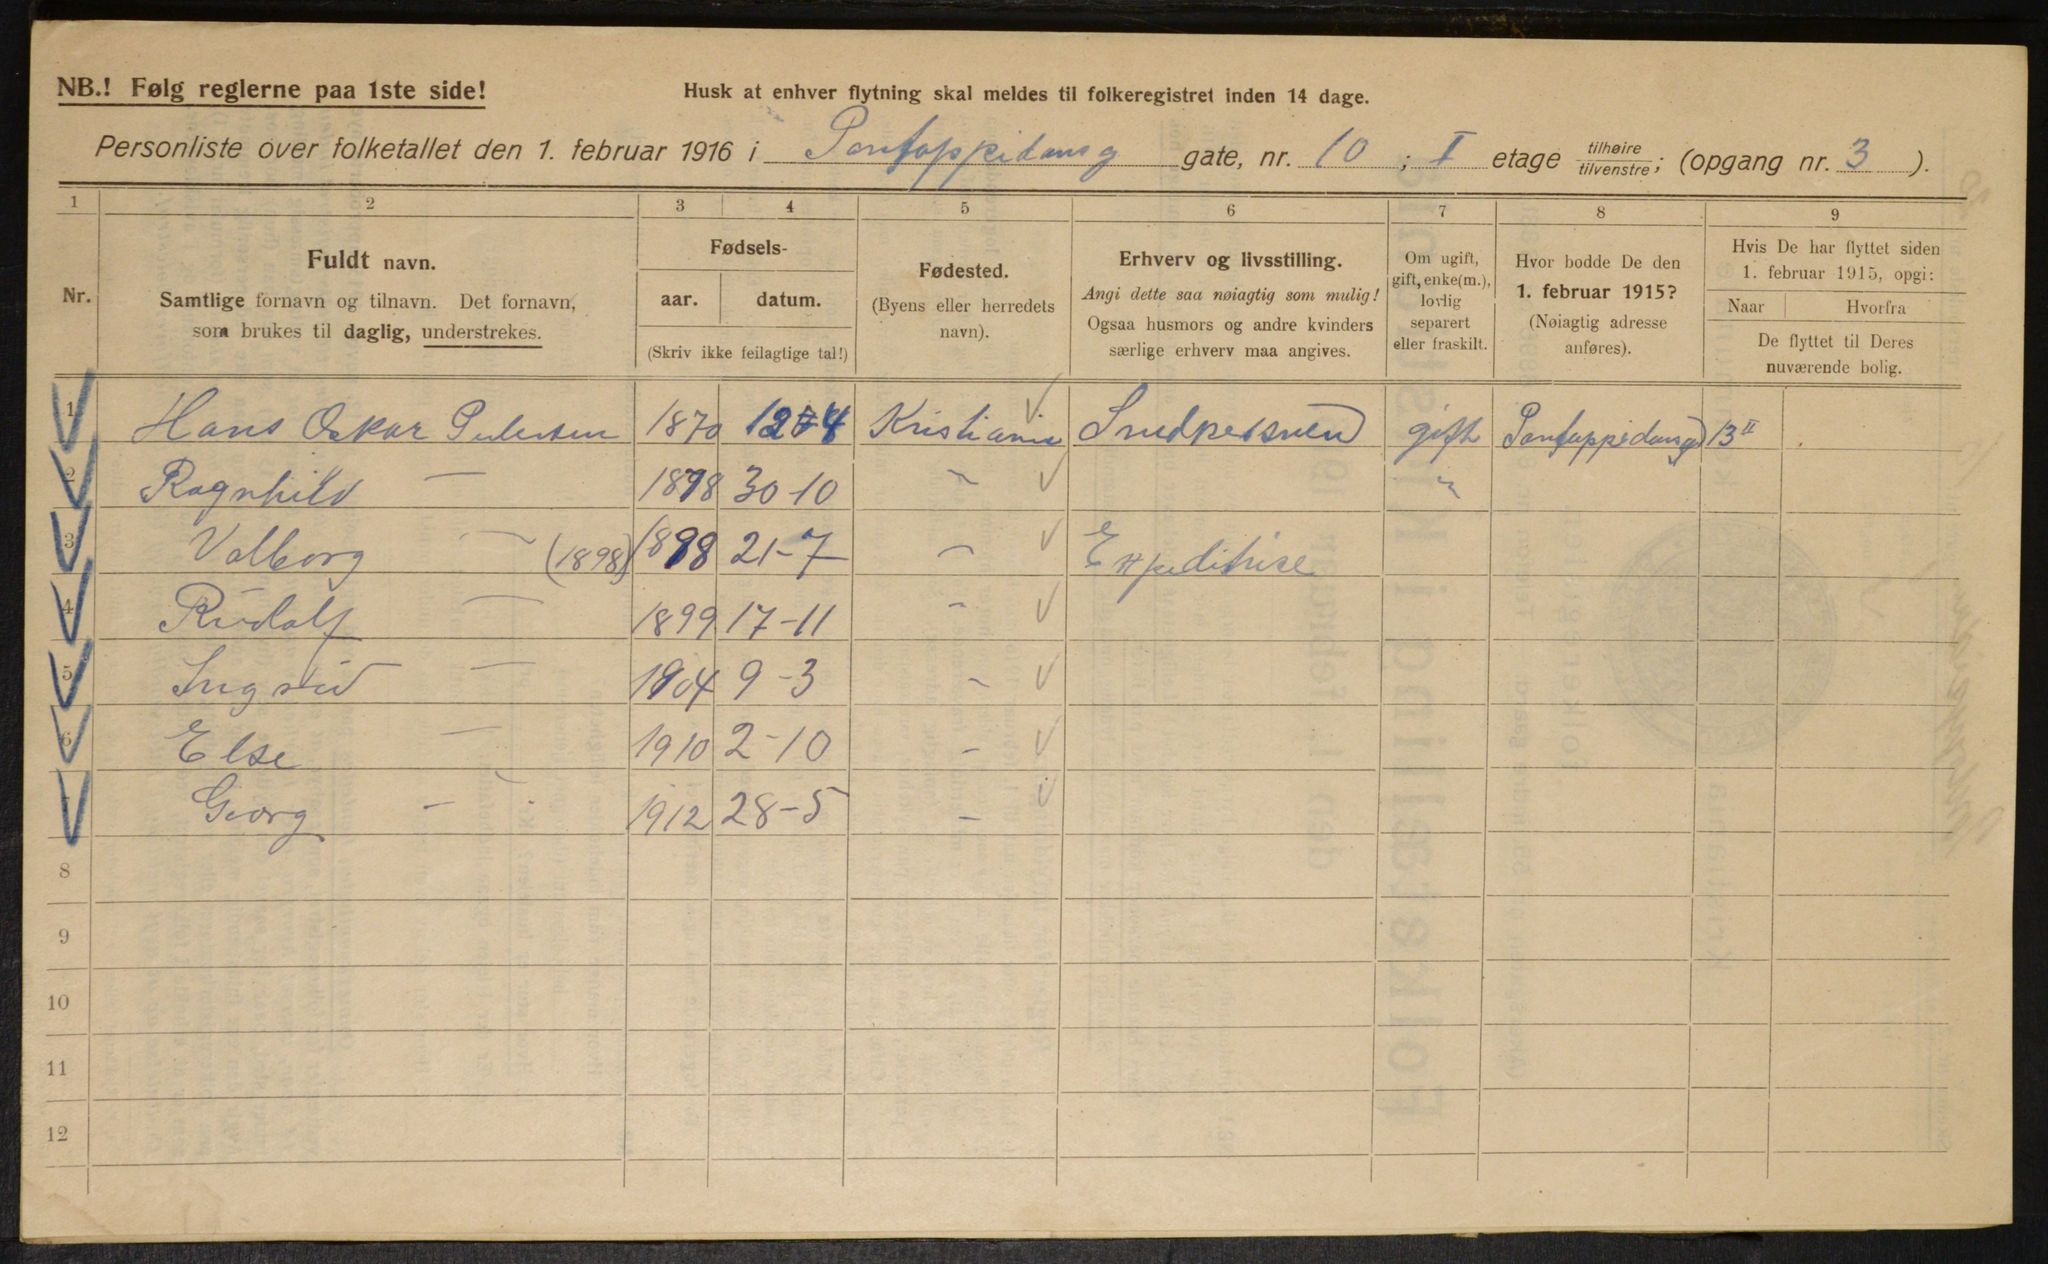 NB.! Følg reglerne paa 1ste side!
Husk at enhver flytning skal meldes til folkeregistret inden 14 dage.
Personliste over folketallet den 1. februar 1916 i Pontoppidansg gate, nr. 10 ; I etage tilhøire tilvenstre; (opgang nr. 3 ).
1 2 3 4 5 6 7 8 9
Nr.
Fuldt navn.
Samtlige fornavn og tilnavn. Det fornavn,
som brukes til daglig, understrekes.
Fødsels-
aar. datum.
(Skriv ikke feilagtige tal!)
Fødested.
(Byens eller herredets
navn).
Erhverv og livsstilling.
Angi dette saa nøiagtig som mulig!
Ogsaa husmors og andre kvinders
særlige erhverv maa angives.
Om ugift,
gift, enke(m.),
lovlig
separert
eller fraskilt.
Hvor bodde De den
1. februar 1915?
(Nøiagtig adresse
anføres).
Hvis De har flyttet siden
1. februar 1915, opgi:
Naar Hvorfra
De flyttet til Deres
nuværende bolig.
1 Hans Oskar Pedersen 1870 12 4 Kristiania gift Pontoppidansg 13 II
2 Ragnhild — 1878 30-10 " "
3 Valborg — (1898) 1898 21-7 " Expeditrise
4 Rudolf — 1899 17-11 "
5 Ingrid — 1904 9-3 "
6 Else — 1910 2-10 -
7 Georg — 1912 28-5 -
8
9
10
11
12